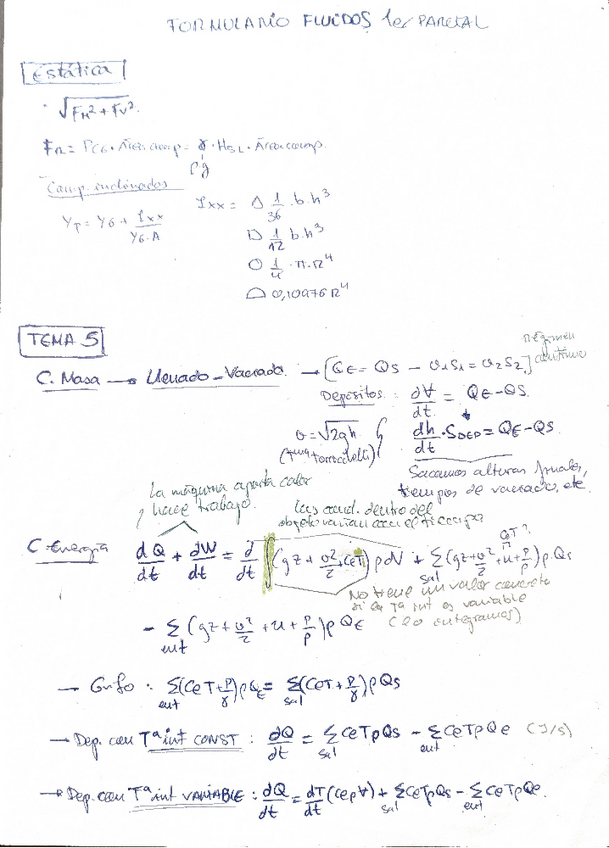 FORMULARIO FLUIDOS 1er PARCIAL
Estática
· √(F_H² + F_V²).
F_R = P_CG · Área comp = γ · H_SL · Área comp.
ρg
Comp. inclinados
I_xx = △ 1/36 · b·h³
Y_P = Y_G + I_xx / (Y_G·A)
1/12 b·h³
○ 1/4 · π·R⁴
0,10976 R⁴
TEMA 5
régimen continuo
C. Masa → Llenado-Vaciado → [Q_E = Q_S - v₁S₁ = v₂S₂]
Depósitos: d∀/dt = Q_E - Q_S
v = √2gh
(Tma Torricelli)
dh/dt · S_DEP = Q_E - Q_S.
Sacamos alturas finales,
tiempos de vaciado, etc.
La máquina aporta calor
hace trabajo.
Las cond. dentro del
objeto varían con el tiempo
CeT?
C. Energía dQ/dt + dW/dt = d/dt ∫(gz + v²/2 + CeT) ρ dV + Σ_sal (gz + v²/2 + u + P/ρ) ρ Q_S
No tiene un valor concreto
si la Tª int es variable
(lo integramos)
- Σ_ent (gz + v²/2 + u + P/ρ) ρ Q_E
→ Grifo: Σ_ent (CeT + P/γ) ρ Q_E = Σ_sal (CeT + P/γ) ρ Q_S
→ Dep. con Tª int CONST: dQ/dt = Σ_sal CeTρQs - Σ_ent CeTρQe (J/s)
→ Dep. con Tª int VARIABLE: dQ/dt = dT/dt (Ceρ∀) + Σ_sal CeTρQs - Σ_ent CeTρQe.